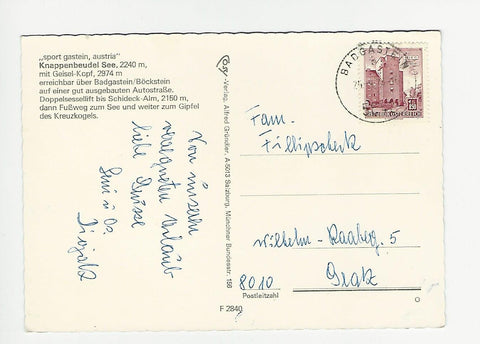 „sport gastein, austria"
Knappenbeudel See, 2240 m,
mit Geisel-Kopf, 2974 m
erreichbar über Badgastein/Böckstein
auf einer gut ausgebauten Autostraße.
Doppelsessellift bis Schideck-Alm, 2150 m,
dann Fußweg zum See und weiter zum Gipfel
des Kreuzkogels.
Von unserem
verregneten Urlaub
liebe Grüsse
-Verlag, Alfred Gründler, A-5013 Salzburg, Münchner Bundesstr. 156
F 2840
BADGASTEIN
REPUBLIK ÖSTERREICH
Fam.
Fillipscheck
Wilhelm-Raabeg. 5
8010 Graz
Postleitzahl